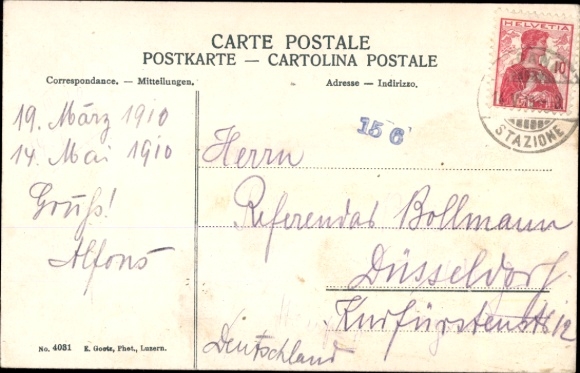 CARTE POSTALE
POSTKARTE — CARTOLINA POSTALE
Correspondance. — Mittellungen.
Adresse — Indirizzo.
HELVETIA
10
STAZIONE
15 6
19. März 1910
14. Mai 1910
Gruß!
Alfons
Herrn
Referendar Bollmann
Düsseldorf
Kurfürstenstr 12
Deutschland
No. 4031 E. Goetz, Phot., Luzern.